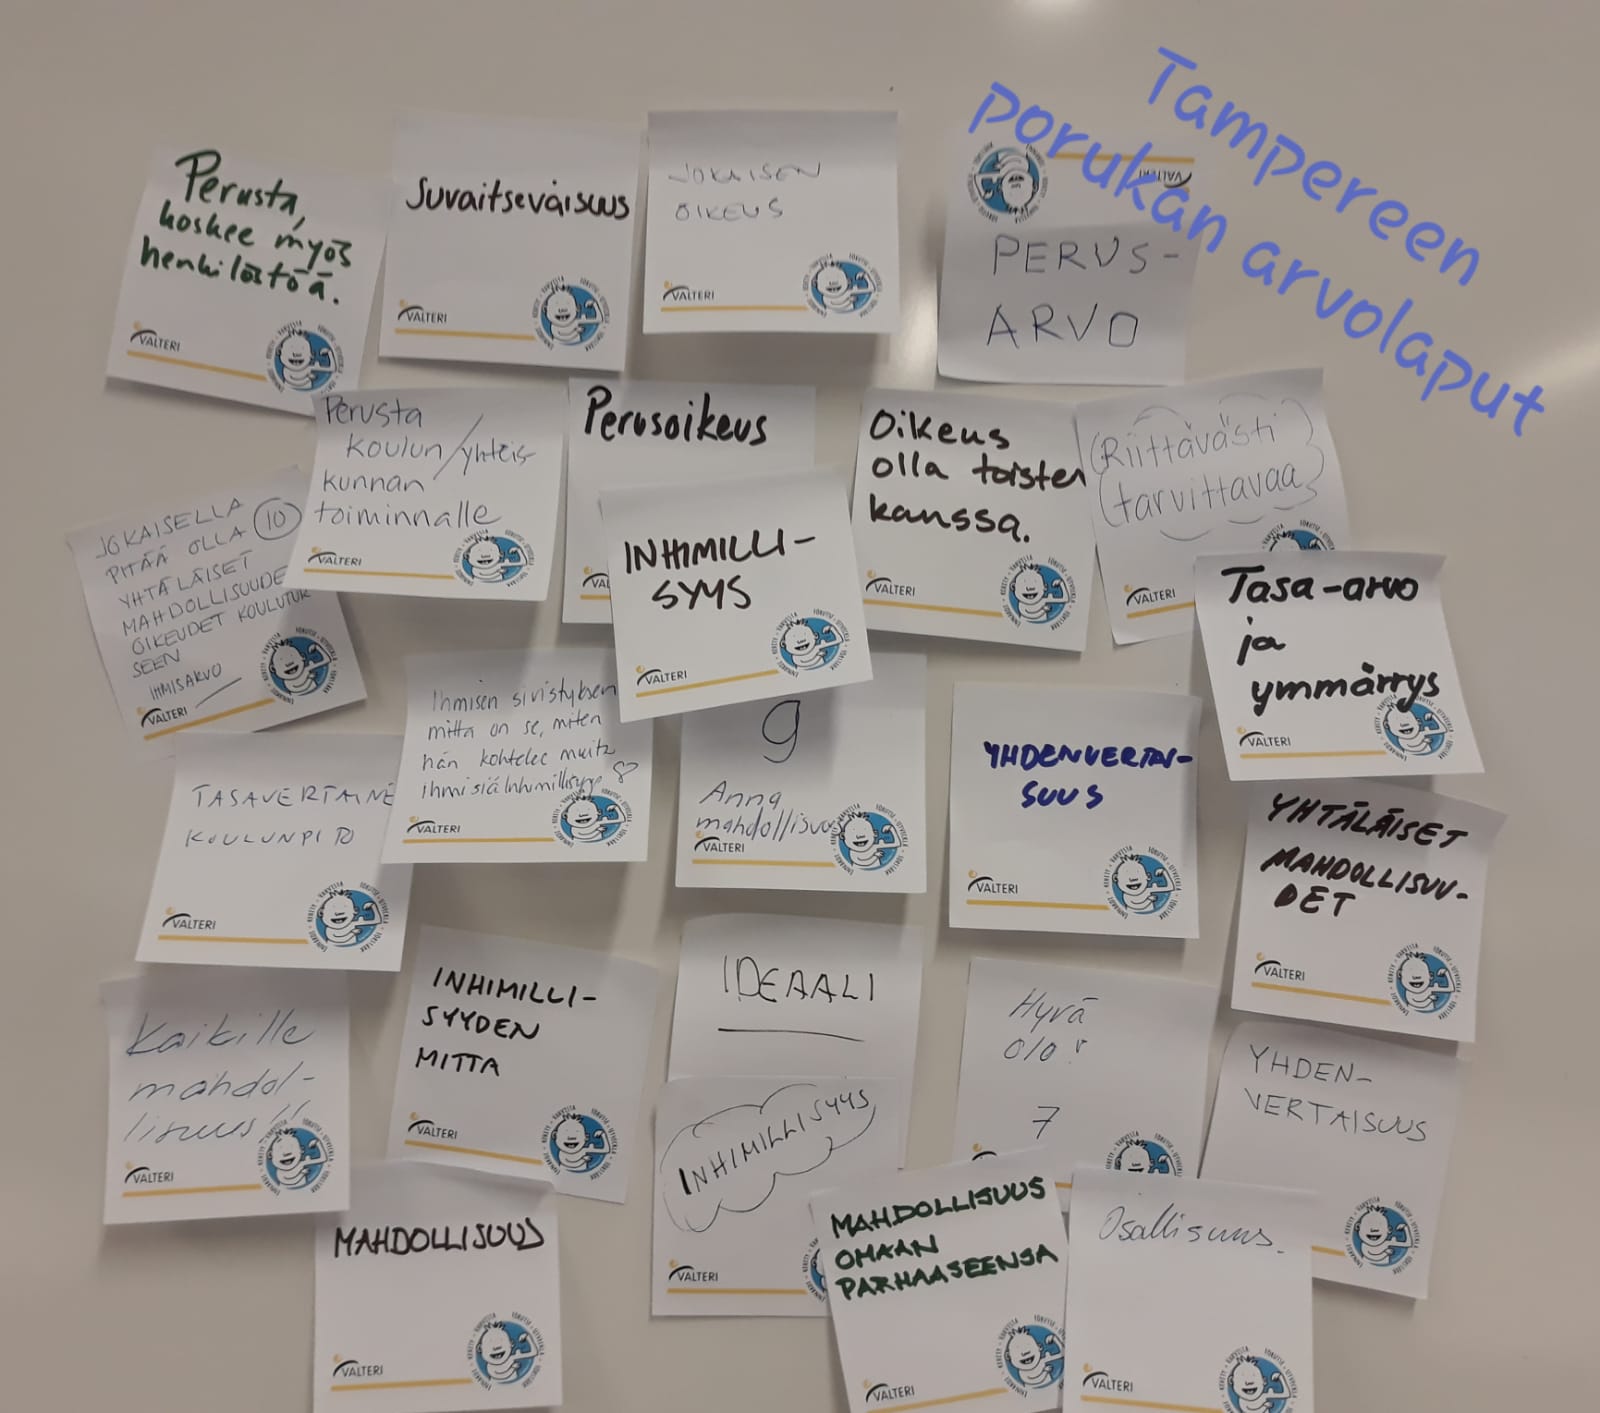 Tampereen
porukan arvolaput
Perusta,
koskee myös
henkilöstöä.
VALTERI
Suvaitsevaisuus
VALTERI
JOKAISEN
OIKEUS
VALTERI
VALTERI
PERUS-
ARVO
Perusta
koulun/yhteis-
kunnan
toiminnalle
VALTERI
Perusoikeus
VAL
INHIMILLI-
SYYS
VALTERI
Oikeus
olla toisten
kanssa.
VALTERI
(Riittävästi
(tarvittavaa)
VALTERI
JOKAISELLA
PITÄÄ OLLA 10
YHTÄLÄISET
MAHDOLLISUUDE
OIKEUDET KOULUTUK
SEEN
IHMISARVO
VALTERI
Tasa-arvo
ja
ymmärrys
VALTERI
Ihmisen sivistyksen
mitta on se, miten
hän kohtelee muita
ihmisiä Inhimillisyys
VALTERI
9
Anna
mahdollisuus
VALTERI
YHDENVERTAI-
SUUS
VALTERI
TASAVERTAINE
KOULUNPITO
VALTERI
YHTÄLÄISET
MAHDOLLISUU-
DET
VALTERI
Kaikille
mahdol-
lisuus!!
VALTERI
INHIMILLI-
SYYDEN
MITTA
VALTERI
IDEAALI
Hyvä
olo!
7
YHDEN-
VERTAISUUS
INHIMILLISYYS
VALTERI
MAHDOLLISUUS
VALTERI
MAHDOLLISUUS
OMAAN
PARHAASEENSA
VALTERI
Osallisuus.
VALTERI